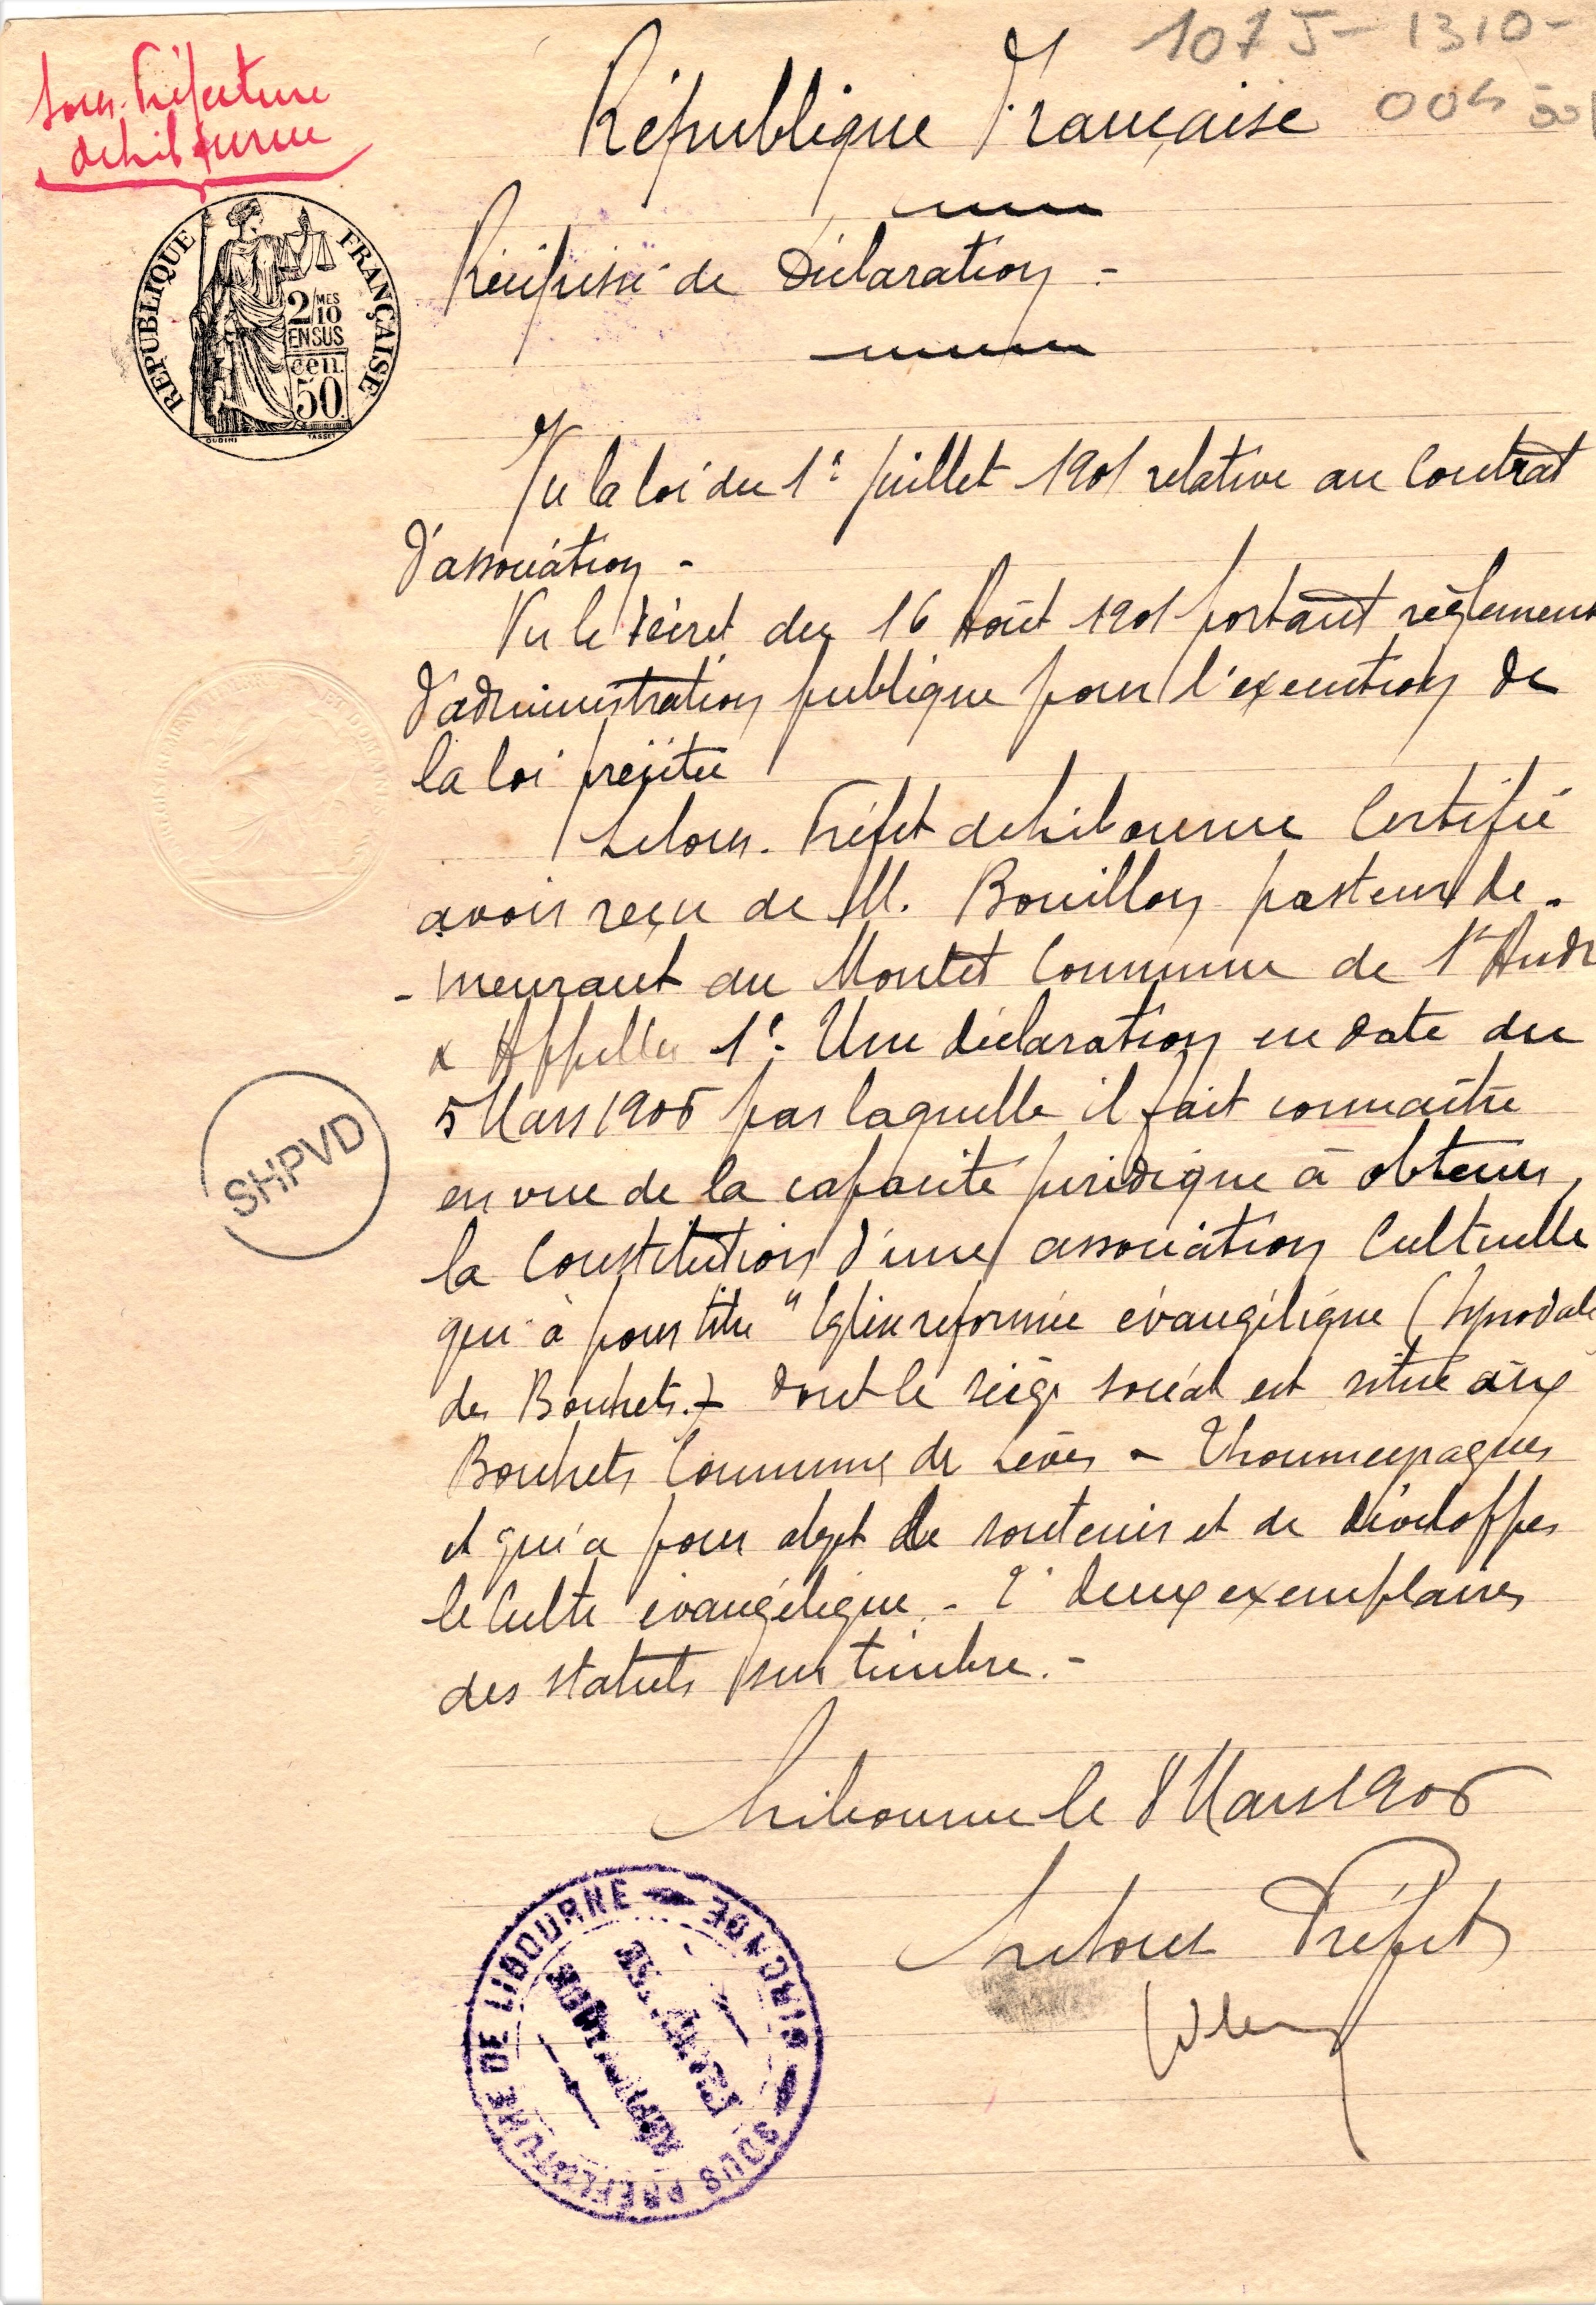 107 J - 1310 -
004 001
Sous-Préfecture
de Libourne
République Française
RÉPUBLIQUE FRANÇAISE
2/10 MES
EN SUS
cen.
50.
OUDINÉ TASSET
Récépissé de Déclaration -
Vu la loi du 1er juillet 1901 relative au Contrat
d'association -
Vu le décret du 16 Août 1901 portant règlement
d'administration publique pour l'exécution de
la loi précitée
Le Sous-Préfet de Libourne Certifie
avoir reçu de M. Bouillon pasteur de-
-meurant au Montet Commune de St André
& Appelles 1° Une déclaration en date du
5 Mars 1906 par laquelle il fait connaître
en vue de la capacité juridique à obtenir,
la Constitution d'une association Cultuelle
qui à pour titre "Eglise réformée évangélique (synodale
des Bouhets.) dont le siège social est situé aux
Bouhets Commune de Lèves - Thoumeyragues
et qui a pour objet de soutenir et de développer
le Culte évangélique. - 2° deux exemplaires
des statuts sur timbre. -
SHPVD
Libourne le 8 Mars 1906
Le Sous Préfet
SOUS PRÉFECTURE DE LIBOURNE GIRONDE
RÉPUBLIQUE
FRANÇAISE